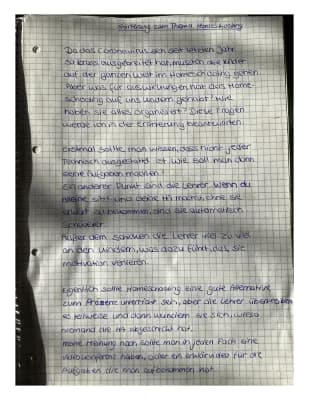 Erörterung zum Thema Homeschooling
Da das Coronavirus sich seit letzten Jahr
so krass ausgebreitet hat, mussten die Kinder
auf der ganzen Welt im Homeschooling gehen.
Aber was für auswirkungen hat das Home-
schooling auf uns Kindern gehabt? Wie
haben sie alles organisiert? Diese Fragen
werde ich in der Erörterung beantworten.
Erstmal sollte man wissen, dass nicht jeder
Technisch ausgestattet ist, wie soll man dann
seine Aufgaben machen?
Ein anderer Punkt sind die Lehrer. Wenn du
alleine sitzt und deine HA machst, ohne sie
erklärt zu bekommen, sind sie automatisch
schwerer.
Außerdem schicken die Lehrer viel zu viel
an den Kindern, was dazu führt, das, sie
motivation verlieren.
Eigentlich sollte Homeschooling eine gute Alternative
zum Präsenz unterricht sein, aber die Lehrer übertreiben
es teilweise und dann wundern sie sich, wieso
niemand die HA abgeschickt hat.
Meine Meinung nach sollte man in jeden Fach eine
Videokonferenz haben, oder ein erklärvideo für die
Aufgaben die man aufbekommen hat.